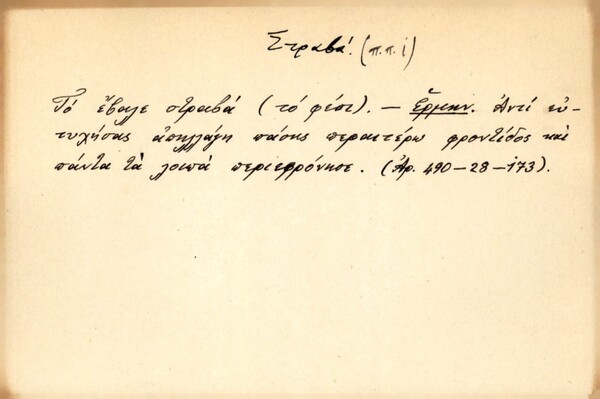 Στραβά. (π.π.ί)
Τό ἔβαλε στραβά (τό φέσι). — Ἑρμην. Ἀντί εὐ-
τυχήσας ἀπηλλάγη πάσης περαιτέρω φροντίδος καί
πάντα τὰ λοιπά περιεφρόνησε. (Ἀρ. 490 — 28 — 173).